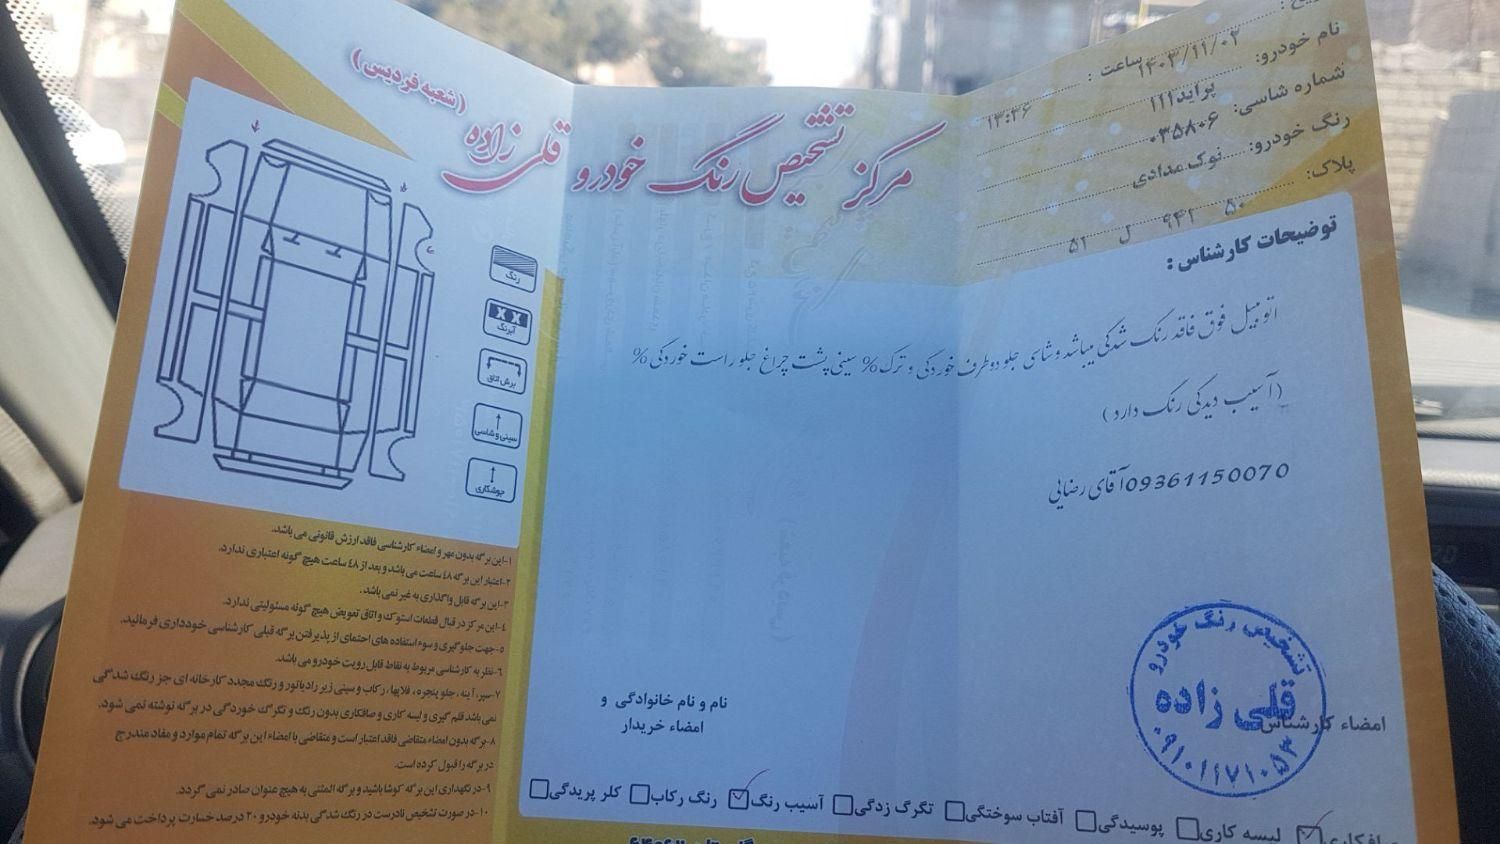 مرکز تشخیص رنگ خودرو قلی زاده
(شعبه فردیس)
۱۴۰۳/۱۱/۰۳ ساعت: ۱۳:۳۶
نام خودرو: پراید111
شماره شاسی: ۰۳۵۸۰۶
رنگ خودرو: نوک مدادی
پلاک: ۵۰ ۹۴۲ ل ۵۲
توضیحات کارشناس:
اتومبیل فوق فاقد رنگ شدگی میباشد وشاسی جلو دوطرف خوردگی و ترک% سینی پشت چراغ جلو راست خوردگی%
(آسیب دیدگی رنگ دارد)
09361150070آقای رضایی
رنگ
X X
آبرنگ
برش اتاق
سینی و شاسی
جوشکاری
۱-این برگه بدون مهر و امضاء کارشناسی فاقد ارزش قانونی می باشد.
۲-اعتبار این برگه ٤٨ ساعت می باشد و بعد از ٤٨ ساعت هیچ گونه اعتباری ندارد.
۳-این برگه قابل واگذاری به غیر نمی باشد.
٤-این مرکز در قبال قطعات استوک و اتاق تعویض هیچ گونه مسئولیتی ندارد.
۵-جهت جلوگیری و سوء استفاده های احتمالی از پذیرفتن برگه قبلی کارشناسی خودداری فرمائید.
۶-نظر به کارشناسی مربوط به نقاط قابل رویت خودرو می باشد.
۷-سپر، آینه، جلو پنجره، فلاپها، رکاب و سینی زیر رادیاتور و رنگ مجدد کارخانه ای جز رنگ شدگی
نمی باشد قلم گیری و لیسه کاری و صافکاری بدون رنگ و تگرگ خوردگی در برگه نوشته نمی شود.
۸-برگه بدون امضاء متقاضی فاقد اعتبار است و متقاضی با امضاء این برگه تمام موارد و مفاد مندرج
در برگه را قبول کرده است.
۹-در نگهداری این برگه کوشا باشید و برگه المثنی به هیچ عنوان صادر نمی گردد.
۱۰-در صورت تشخیص نادرست در رنگ شدگی بدنه خودرو ۲۰ درصد خسارت پرداخت می شود.
نام و نام خانوادگی و
امضاء خریدار
امضاء کارشناس
تشخیص رنگ خودرو
قلی زاده
۰۹۱۰۱۱۷۱۰۵۳
لیسه کاری پوسیدگی آفتاب سوختگی تگرگ زدگی آسیب رنگ رنگ رکاب کلر پریدگی